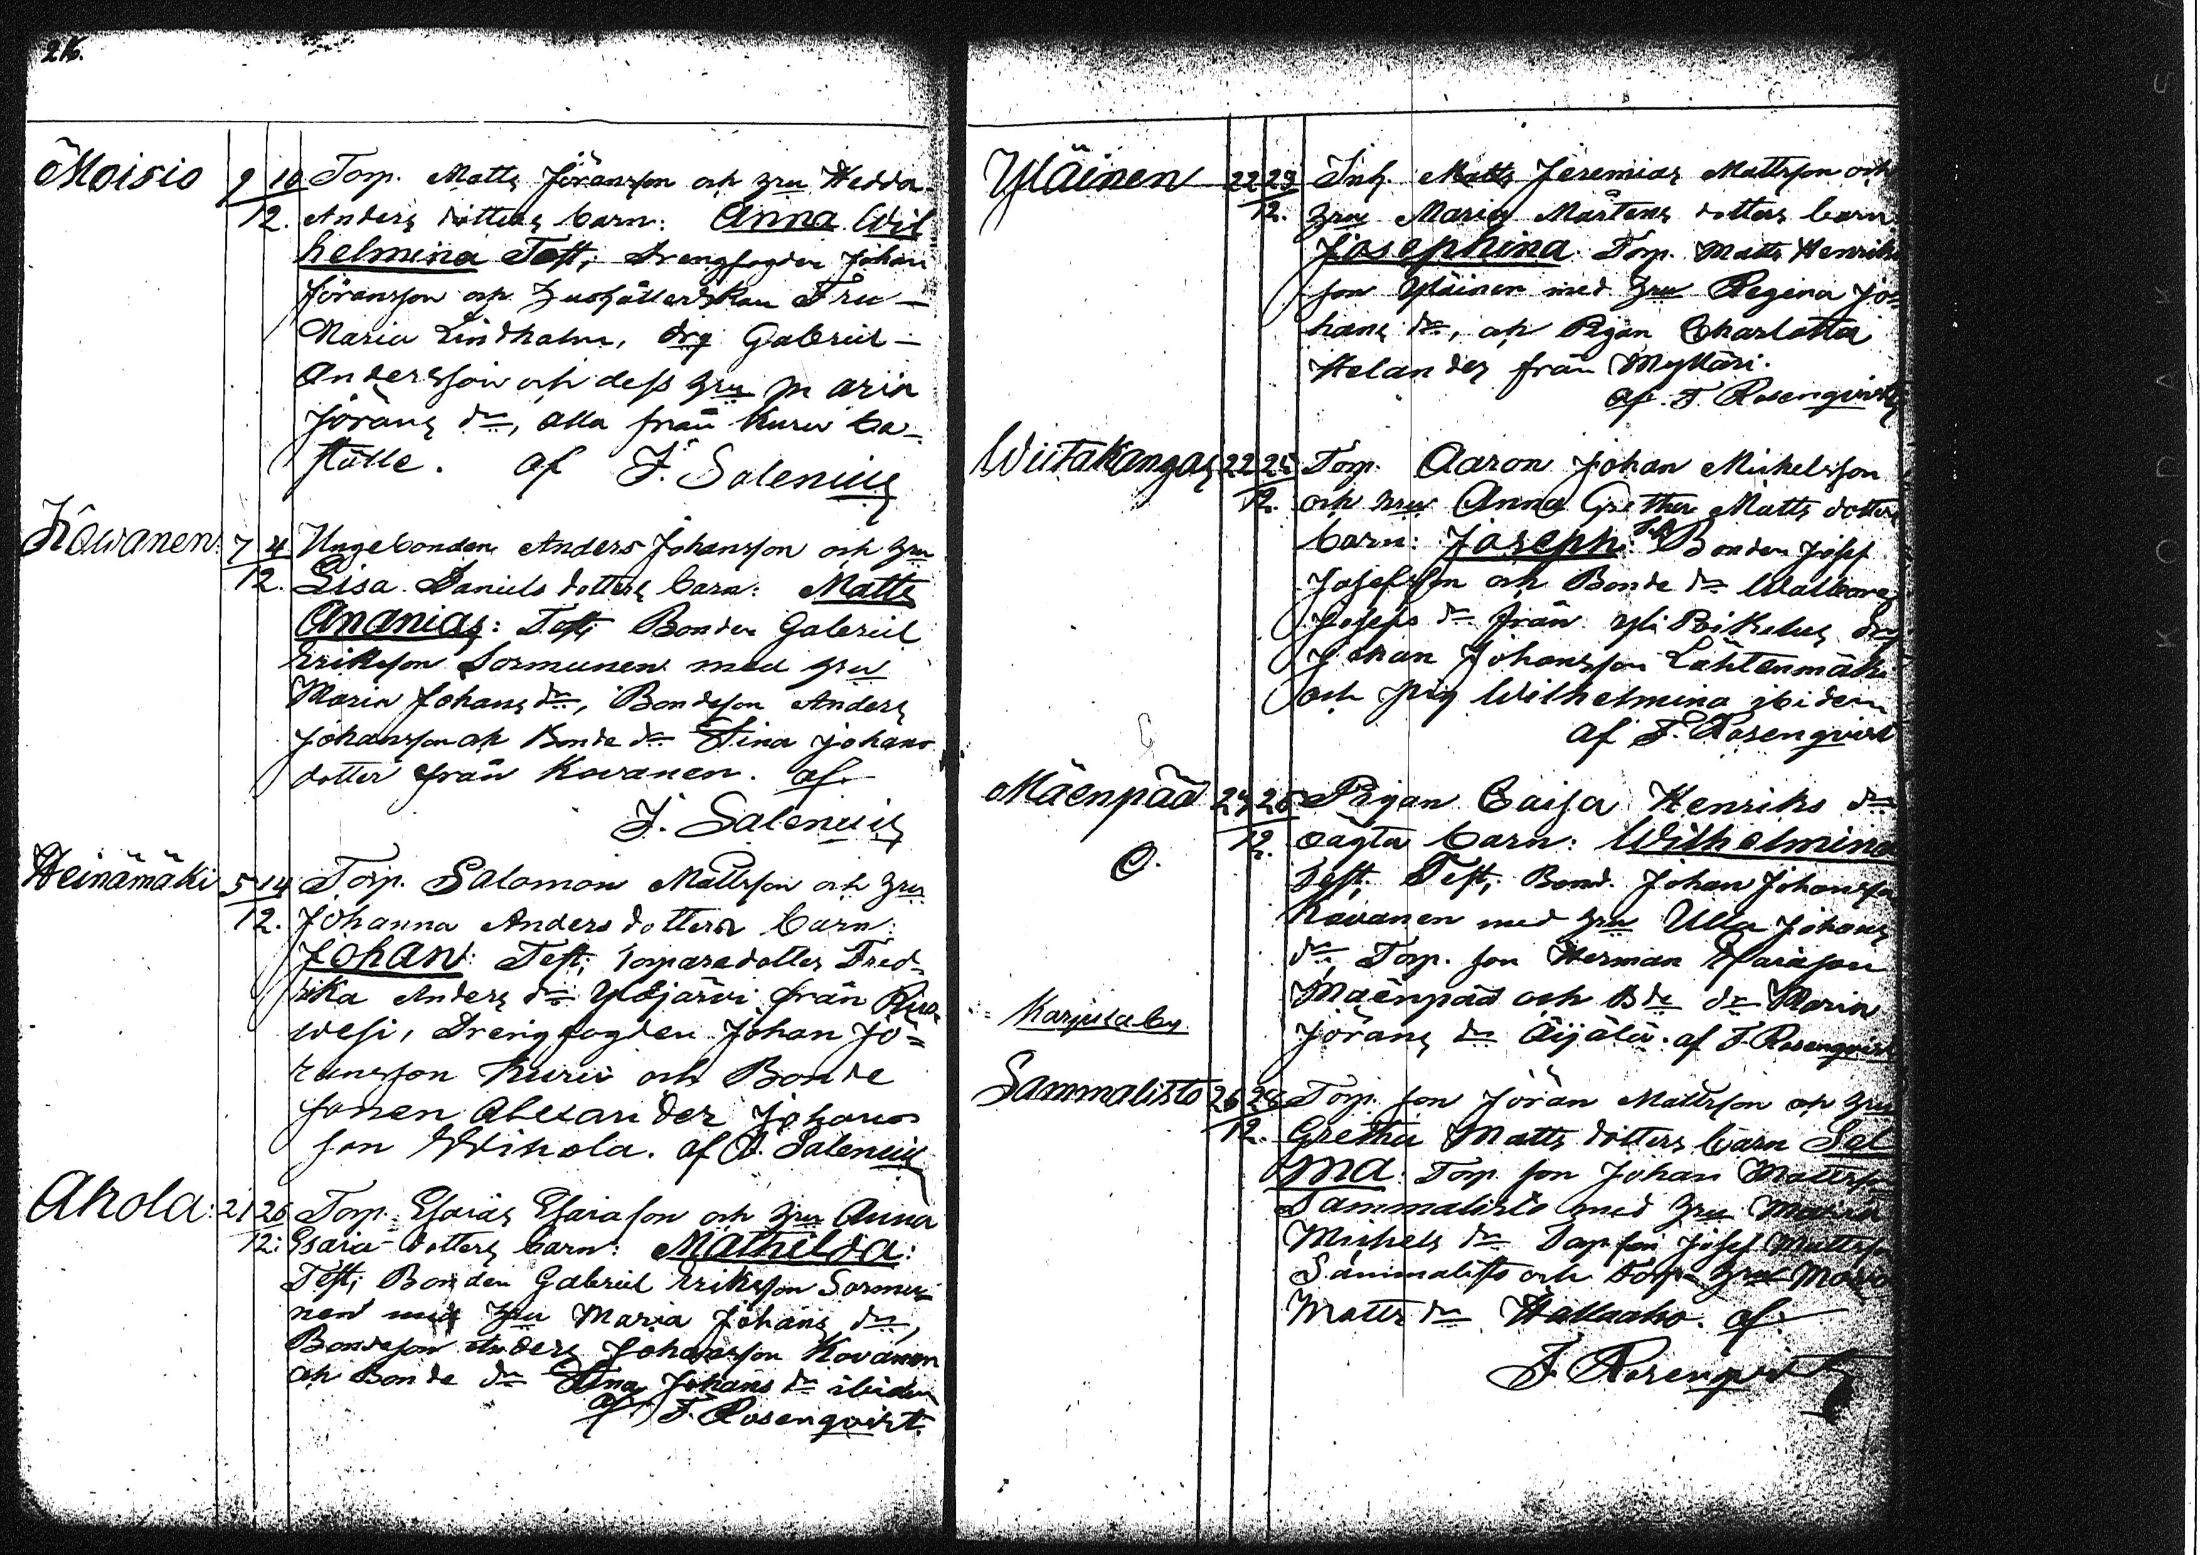 216.
Moisio 9 10 Torp. Matts Jöransson och hru Hedda
12. Anders dotters barn: Anna Wil
helmina Test; Drengfogden Johan
Jöransson och Fru
Maria Lindholm, drg Gabriel
Andersson och dess hru Maria
Jörans dr, alla från Kuru bo-
ställe. af F. Salenius
Kowanen: 7 4 Ungebonden Anders Johansson och hru
12. Lisa Daniels dotters barn: Matts
Ananias: Test; Bonden Gabriel
Eriksson Sormunen med hru
Maria Johans dr, Bondeson Anders
Johansson och Bonde dr Stina Johans
dotter från Kovanen. af
F. Salenius
Heinämäki 5 14 Torp. Salomon Mattsson och hru
12. Johanna Anders dotters barn:
Johan: Test; Torparedotter Fred-
rika Anders dr Ylöjärvi från Ruo-
wesi, Drengfogden Johan Jö-
ransson Kuru och Bonde
sonen Alexander Johans
son Wihola. af F. Salenius
Ahola: 21 26 Torp. Esaias Esaiason och hru Anna
12: Esaia dotters barn: Mathilda:
Test; Bonden Gabriel Eriksson Sormu-
nen med hru Maria Johans dr,
Bondeson Anders Johansson Kovanen
och Bonde dr Stina Johans dr ibidem
af F. Rosenqvist.
Yläinen 22 23 Inh. Matts Jeremias Mattsson och
12. hru Maria Mårtens dotters barn
Josephina: Torp. Matts Henriks
son Yläinen med hru Regina Jo-
hans dr, och Pigan Charlotta
Helander från Myllari.
af F. Rosenqvist
Wiitakangas 22 25 Torp. Aaron Johan Mickelsson
12. och hru Anna Gretha Matts dotters
barn: Joseph: Test Bonden Josef
Josefsson och Bonde dr Walborg
Josefs dr från Yli Poikelus drg
Johan Johansson Lähtenmäki
och pig Wilhelmina ibidem
af F. Rosenqvist
Mäenpää 24 26 Pigan Caisa Henriks dr
O. 12. oägta barn: Wilhelmina
Test; Bond. Johan Johansson
Kovanen med hru Ulla Johans
dr, Torp. son Herman Esaiason
Mäenpää och Bde dr Maria
Karjula by
Jörans dr Äijälä. af F. Rosenqvist
Sammalisto 26 28 Torp. son Jöran Mattsson och hru
12. Gretha Matts dotters barn Sel
ma: Torp. son Johan Mattsson
Sammalisto med hru Maria
Michels dr Torp. son Josef Mattsson
Sammalisto och Torp. hru Maria
Matts dr Hallaaho. af
F. Rosenqvist
KODAK S